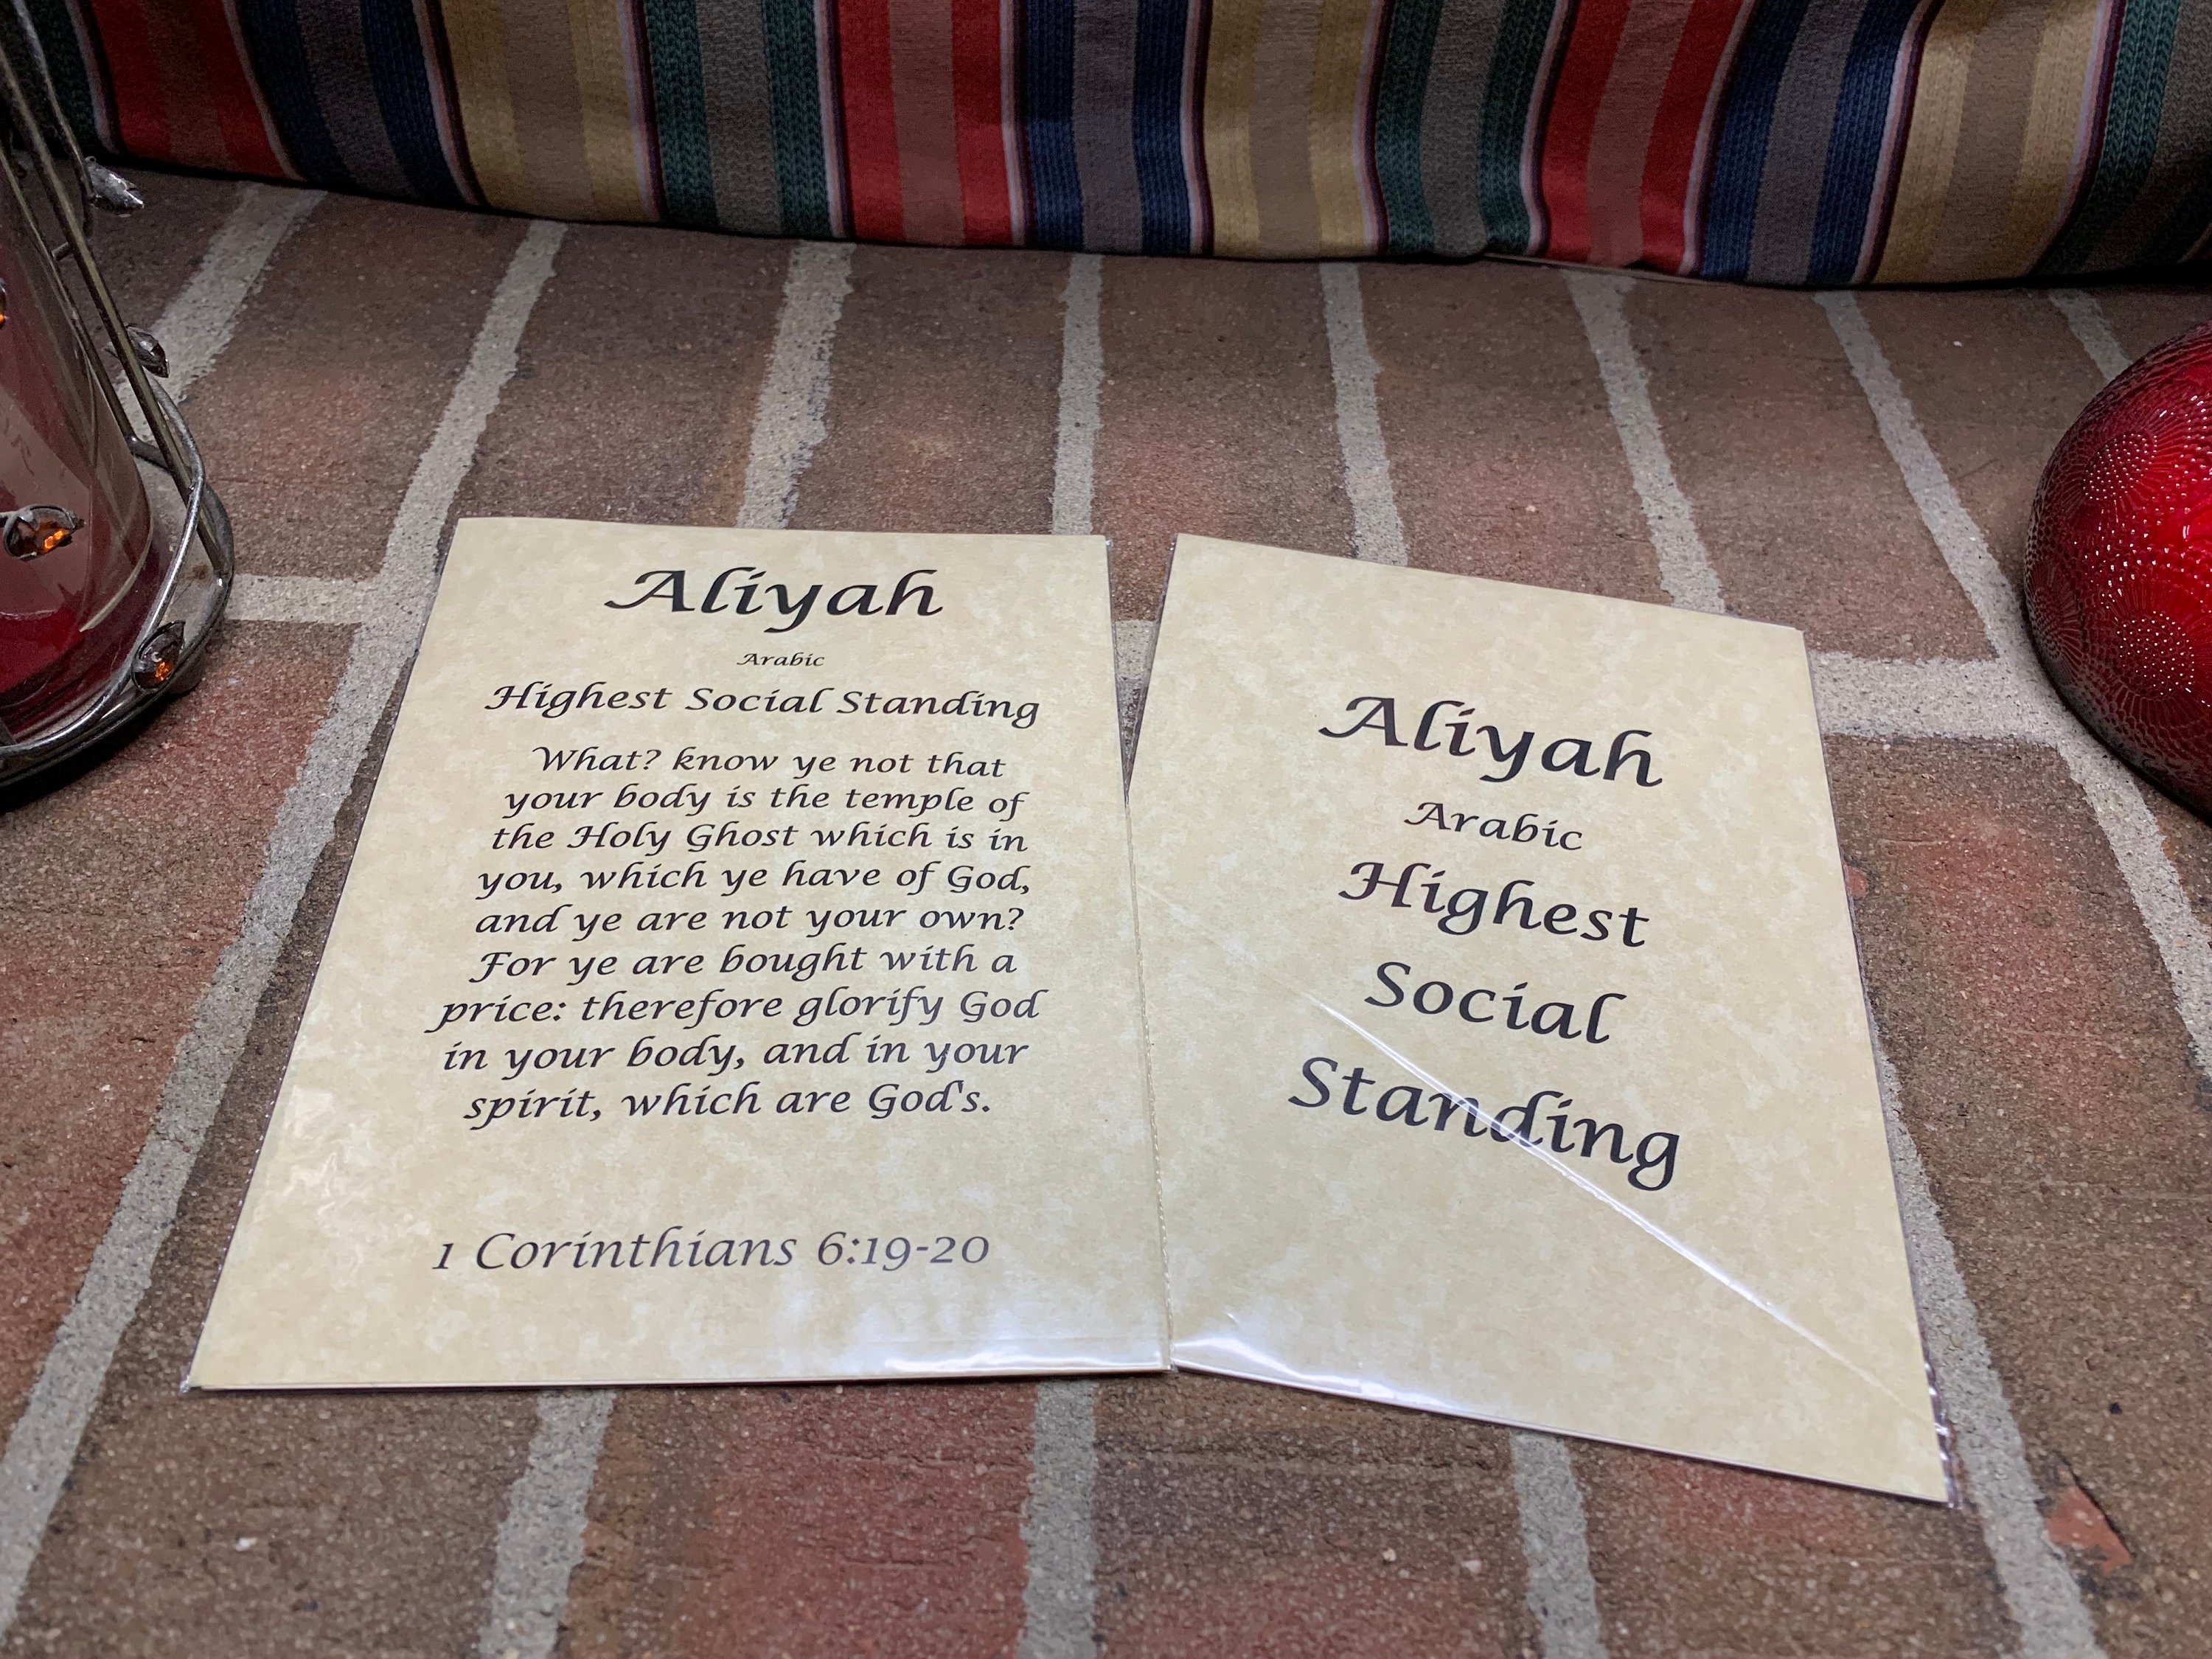 Aliyah
Arabic
Highest Social Standing
What? know ye not that
your body is the temple of
the Holy Ghost which is in
you, which ye have of God,
and ye are not your own?
For ye are bought with a
price: therefore glorify God
in your body, and in your
spirit, which are God's.
1 Corinthians 6:19-20
Aliyah
Arabic
Highest
Social
Standing